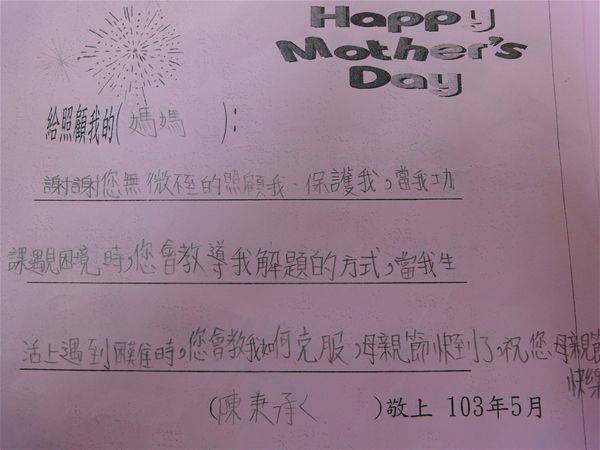 Happy
Mother's
Day
給照顧我的(媽媽):
謝謝您無微不至的照顧我、保護我,當我功
課遇見困境時,您會教導我解題的方式,當我生
活上遇到困難時,您會教我如何克服,母親節快到了,祝您母親節
快樂
(陳秉承)敬上 103年5月